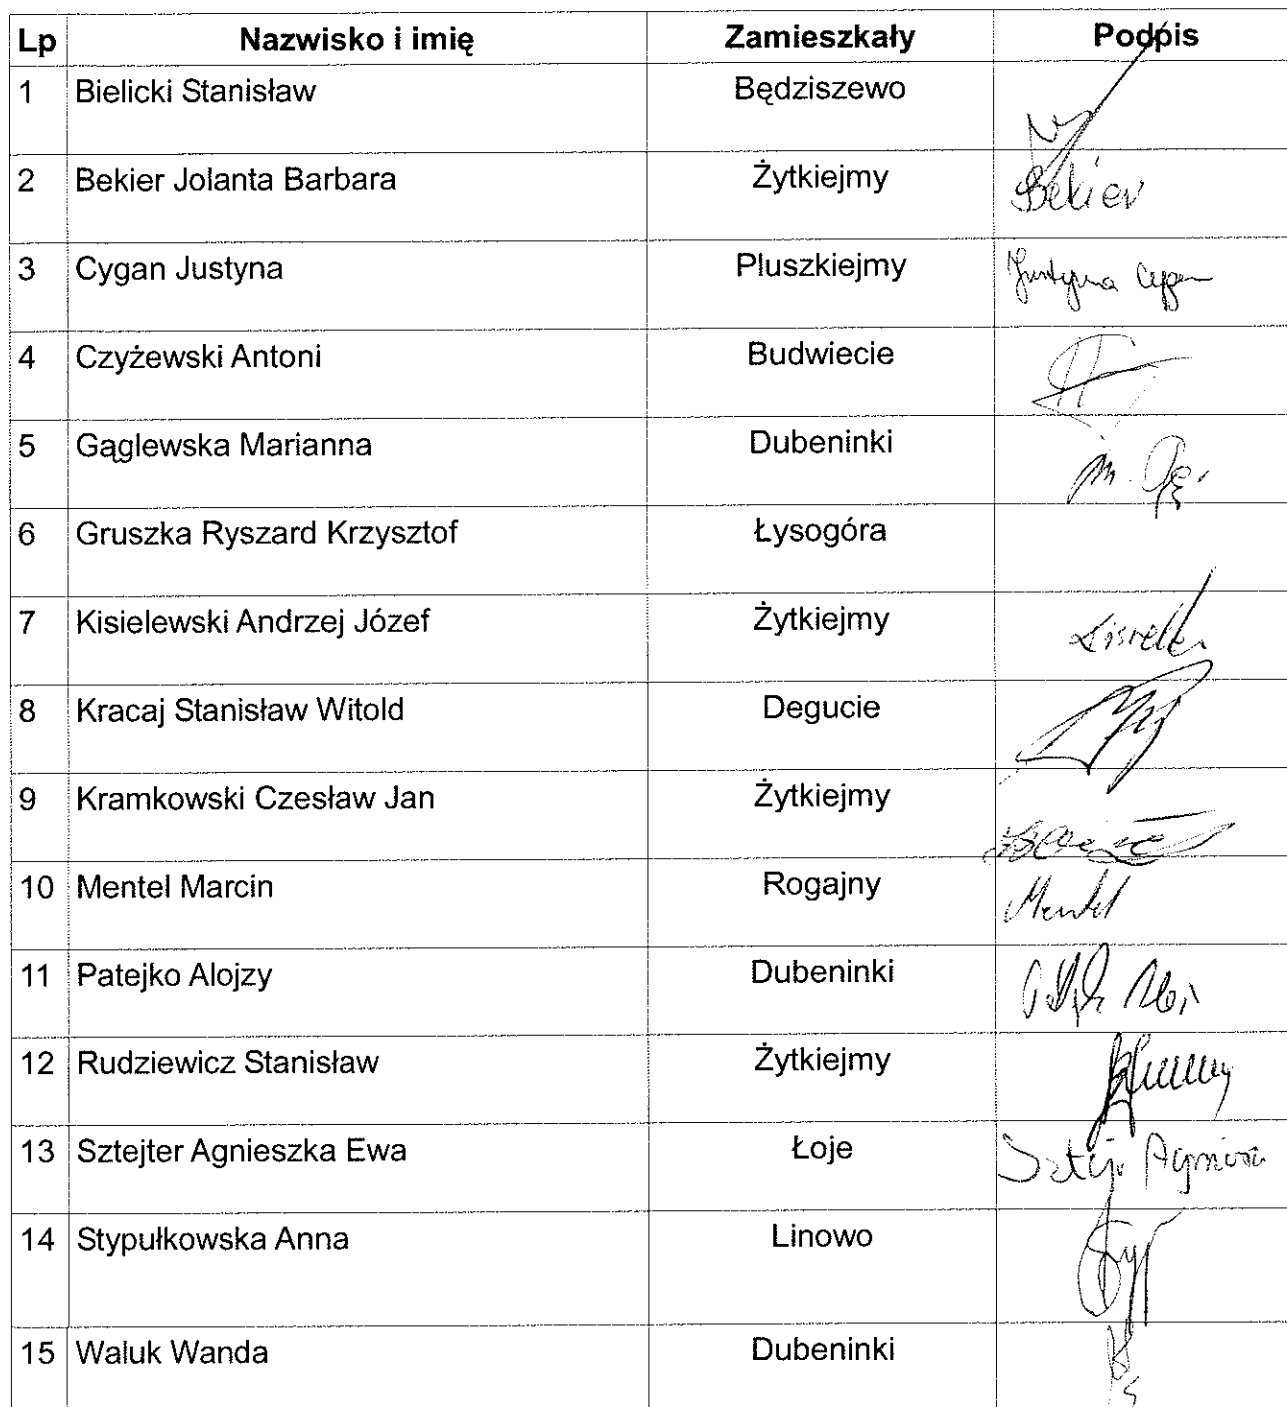 Lp Nazwisko i imię Zamieszkały Podpis
1 Bielicki Stanisław Będziszewo
2 Bekier Jolanta Barbara Żytkiejmy Bekier
3 Cygan Justyna Pluszkiejmy Justyna Cygan
4 Czyżewski Antoni Budwiecie
5 Gąglewska Marianna Dubeninki
6 Gruszka Ryszard Krzysztof Łysogóra
7 Kisielewski Andrzej Józef Żytkiejmy
8 Kracaj Stanisław Witold Degucie
9 Kramkowski Czesław Jan Żytkiejmy
10 Mentel Marcin Rogajny Mentel
11 Patejko Alojzy Dubeninki
12 Rudziewicz Stanisław Żytkiejmy
13 Sztejter Agnieszka Ewa Łoje
14 Stypułkowska Anna Linowo
15 Waluk Wanda Dubeninki